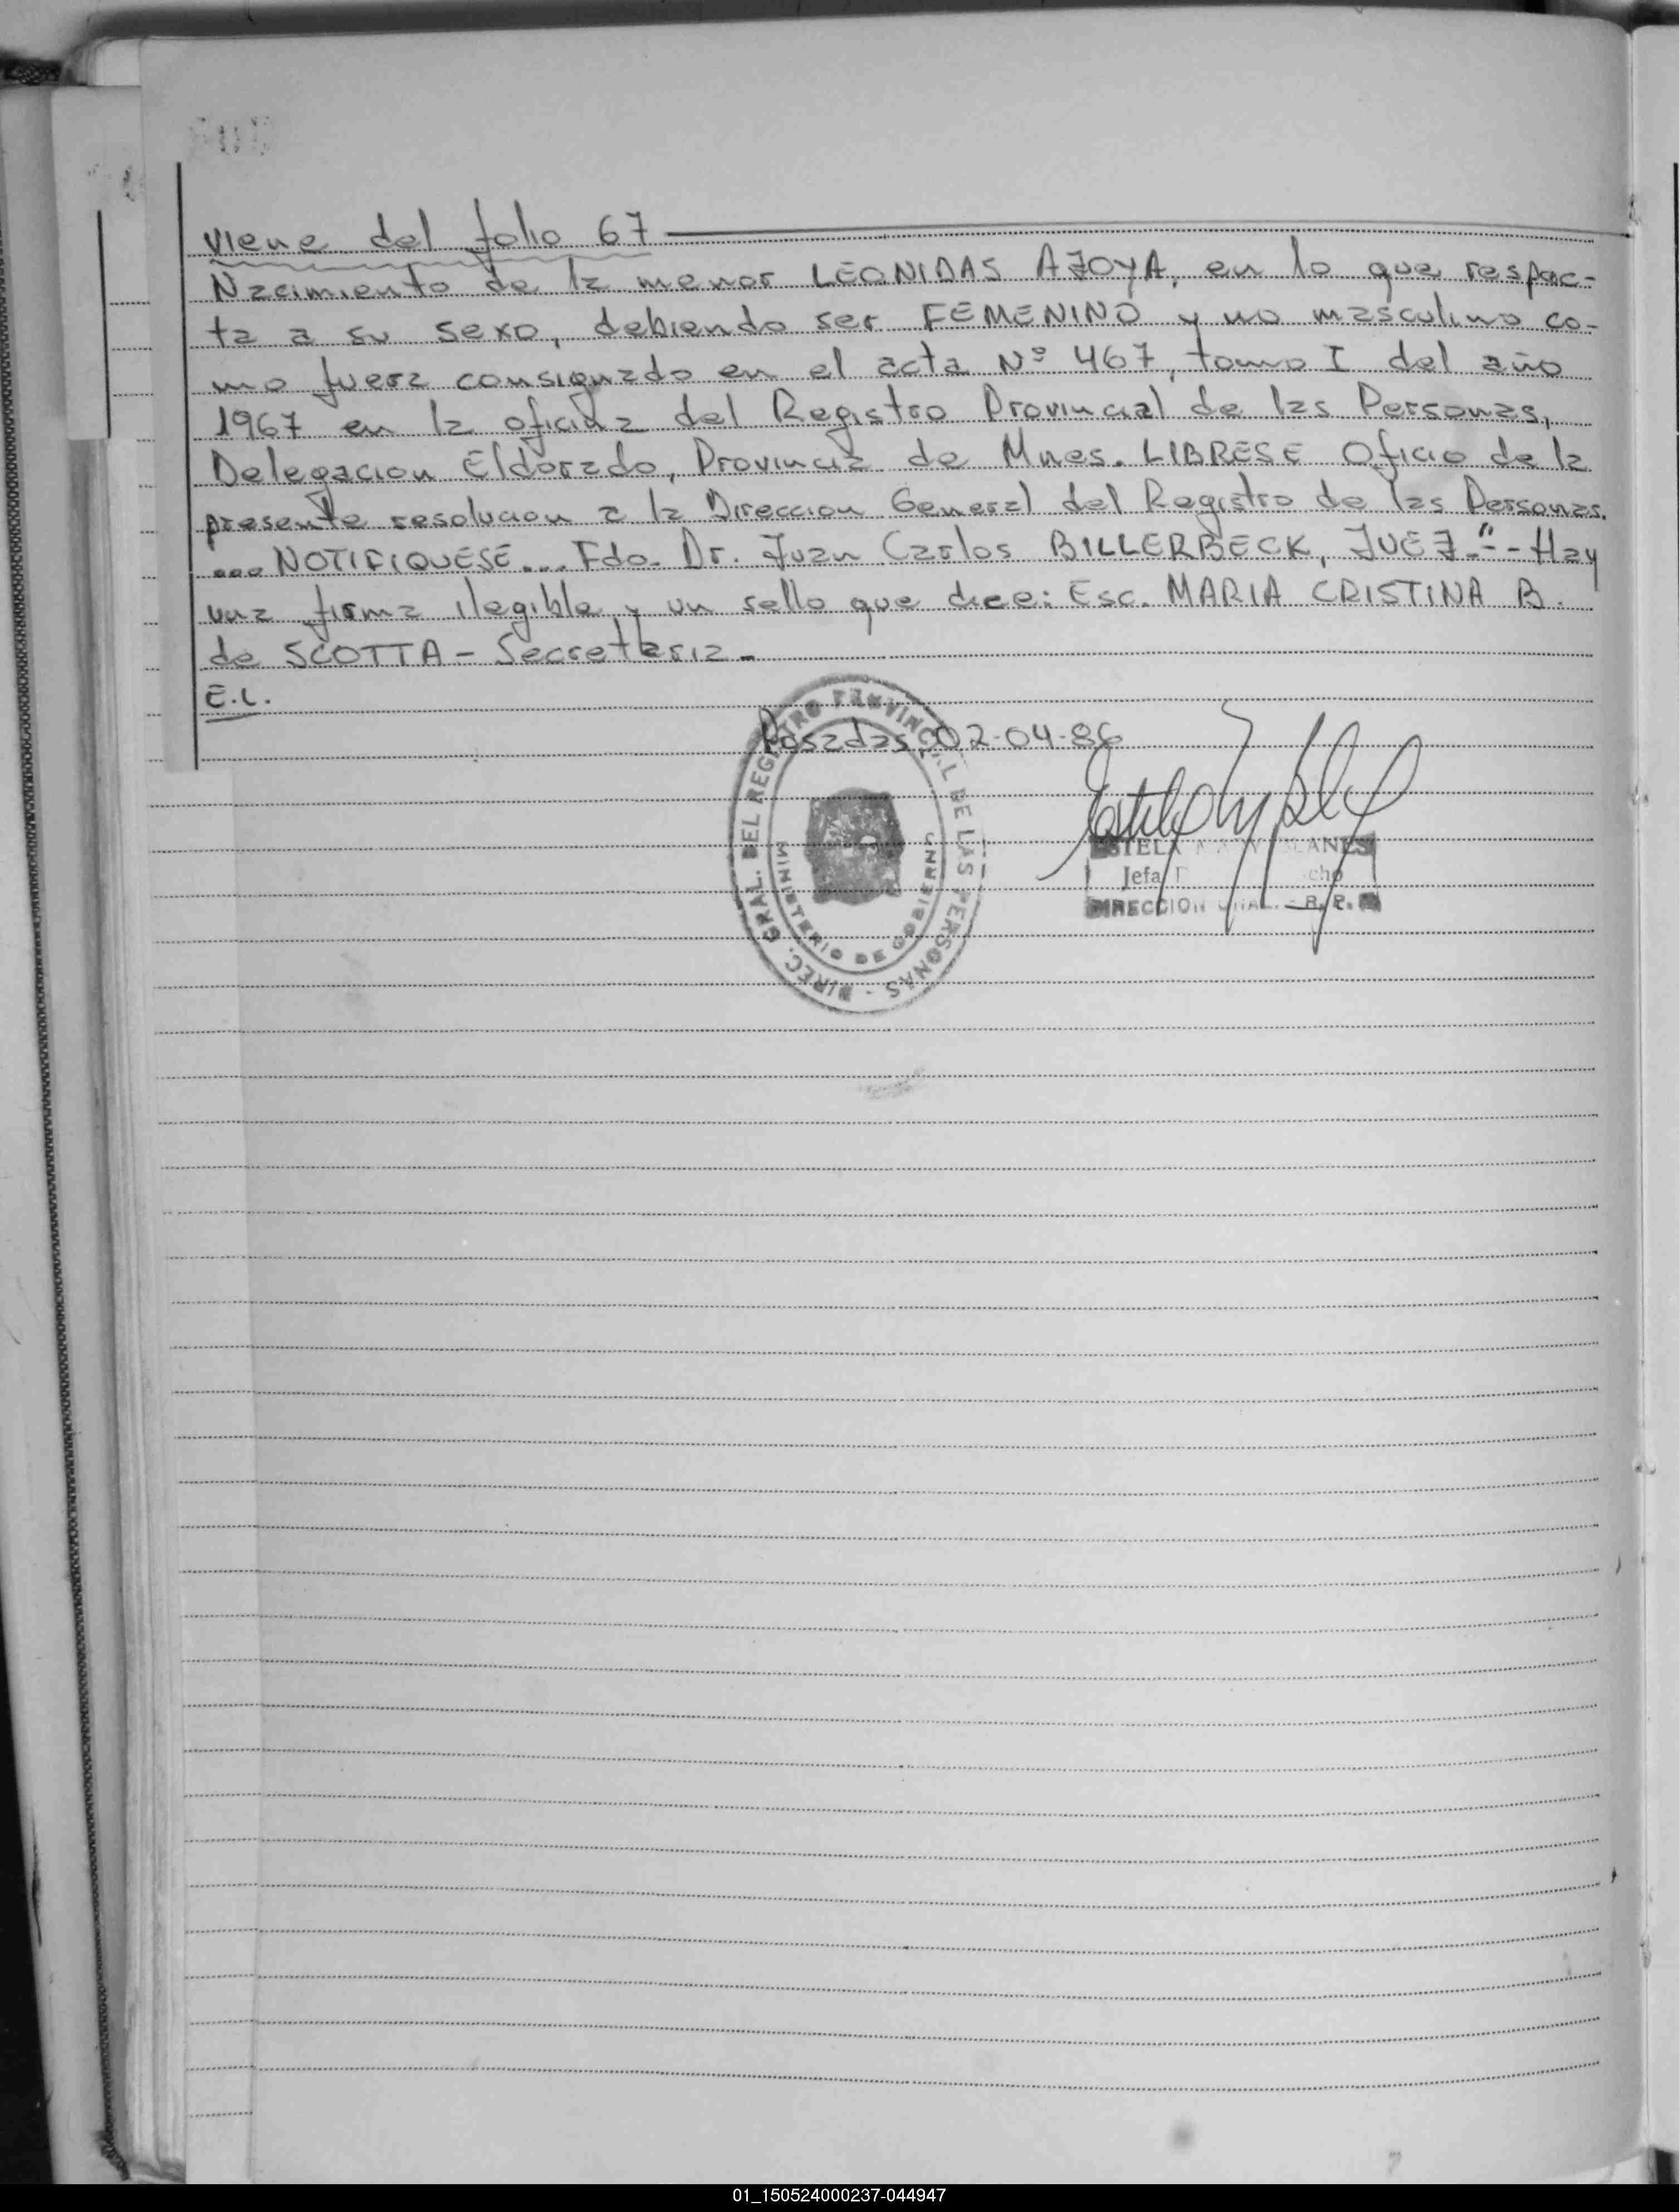 viene del folio 67
Nacimiento de la menor LEONIDAS AZOYA, en lo que respec-
ta a su sexo, debiendo ser FEMENINO y no masculino co-
mo fuera consignado en el acta Nº 467, tomo I del año
1967 en la oficina del Registro Provincial de las Personas,
Delegacion Eldorado, Provincia de Mnes. LIBRESE Oficio de la
presente resolucion a la Direccion General del Registro de las Personas.
... NOTIFIQUESE... Fdo. Dr. Juan Carlos BILLERBECK, JUEZ.-"- Hay
una firma ilegible y un sello que dice: Esc. MARIA CRISTINA B.
de SCOTTA - Secretaria -
E.L.
Posadas, 02-04-86
DIREC. GRAL. DEL REGISTRO PROVINCIAL DE LAS PERSONAS -
MINISTERIO DE GOBIERNO
ESTELA
Jefa
DIRECCION GRAL. R. P.
01_150524000237-044947